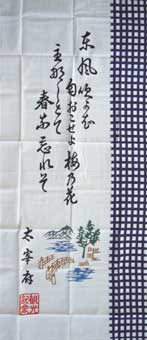 東風吹かば
匂おこせよ梅乃花
主那しとて
春な忘れそ
太宰府
観光
記念